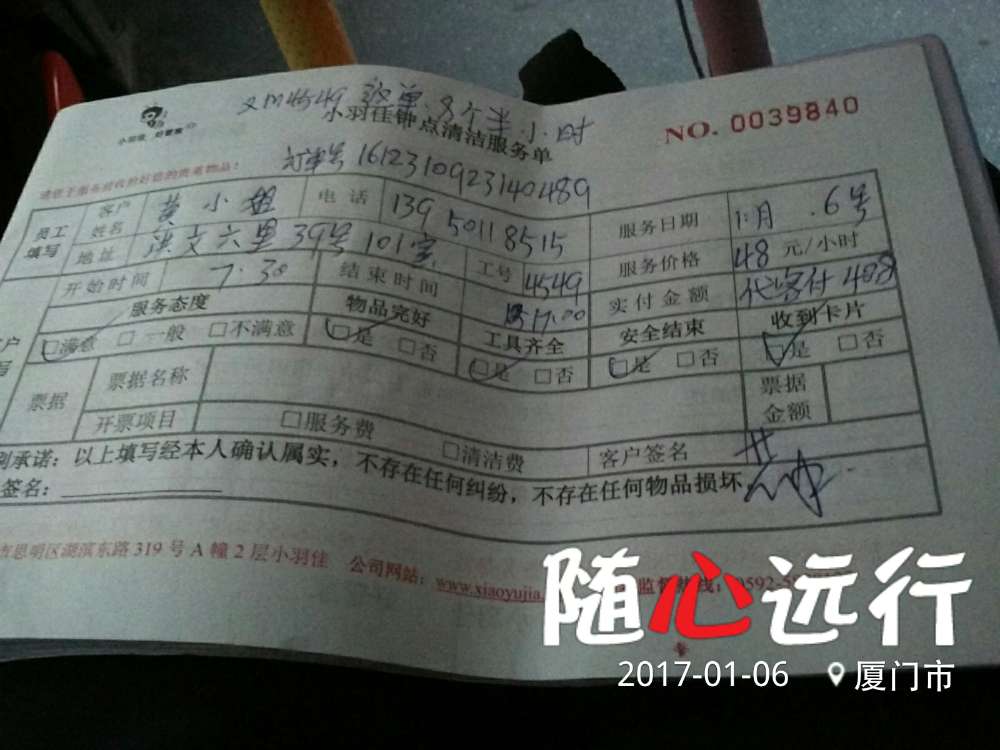 签单.8个半小时
小羽佳 好管家
小羽佳钟点清洁服务单
NO. 0039840
订单号 1612310923140489
请您于服务前收拾好您的贵重物品！
员工填写 客户姓名 黄小姐 电话 139 5011 8515 服务日期 1月.6号
地址 六里39号101室 工号 4549 服务价格 48 元/小时
开始时间 7:30 结束时间 17:00 实付金额 代客付 408
服务态度 物品完好 工具齐全 安全结束 收到卡片
□满意 □一般 □不满意 □是 □否 □是 □否 □是 □否 □是 □否
票据 票据名称 票据金额
开票项目 □服务费 □清洁费 客户签名
别承诺：以上填写经本人确认属实，不存在任何纠纷，不存在任何物品损坏。
签名：
市思明区湖滨东路 319 号 A 幢 2 层小羽佳 公司网站：www.xiaoyujia. 监督热线：0592-5
随心远行
2017-01-06 厦门市